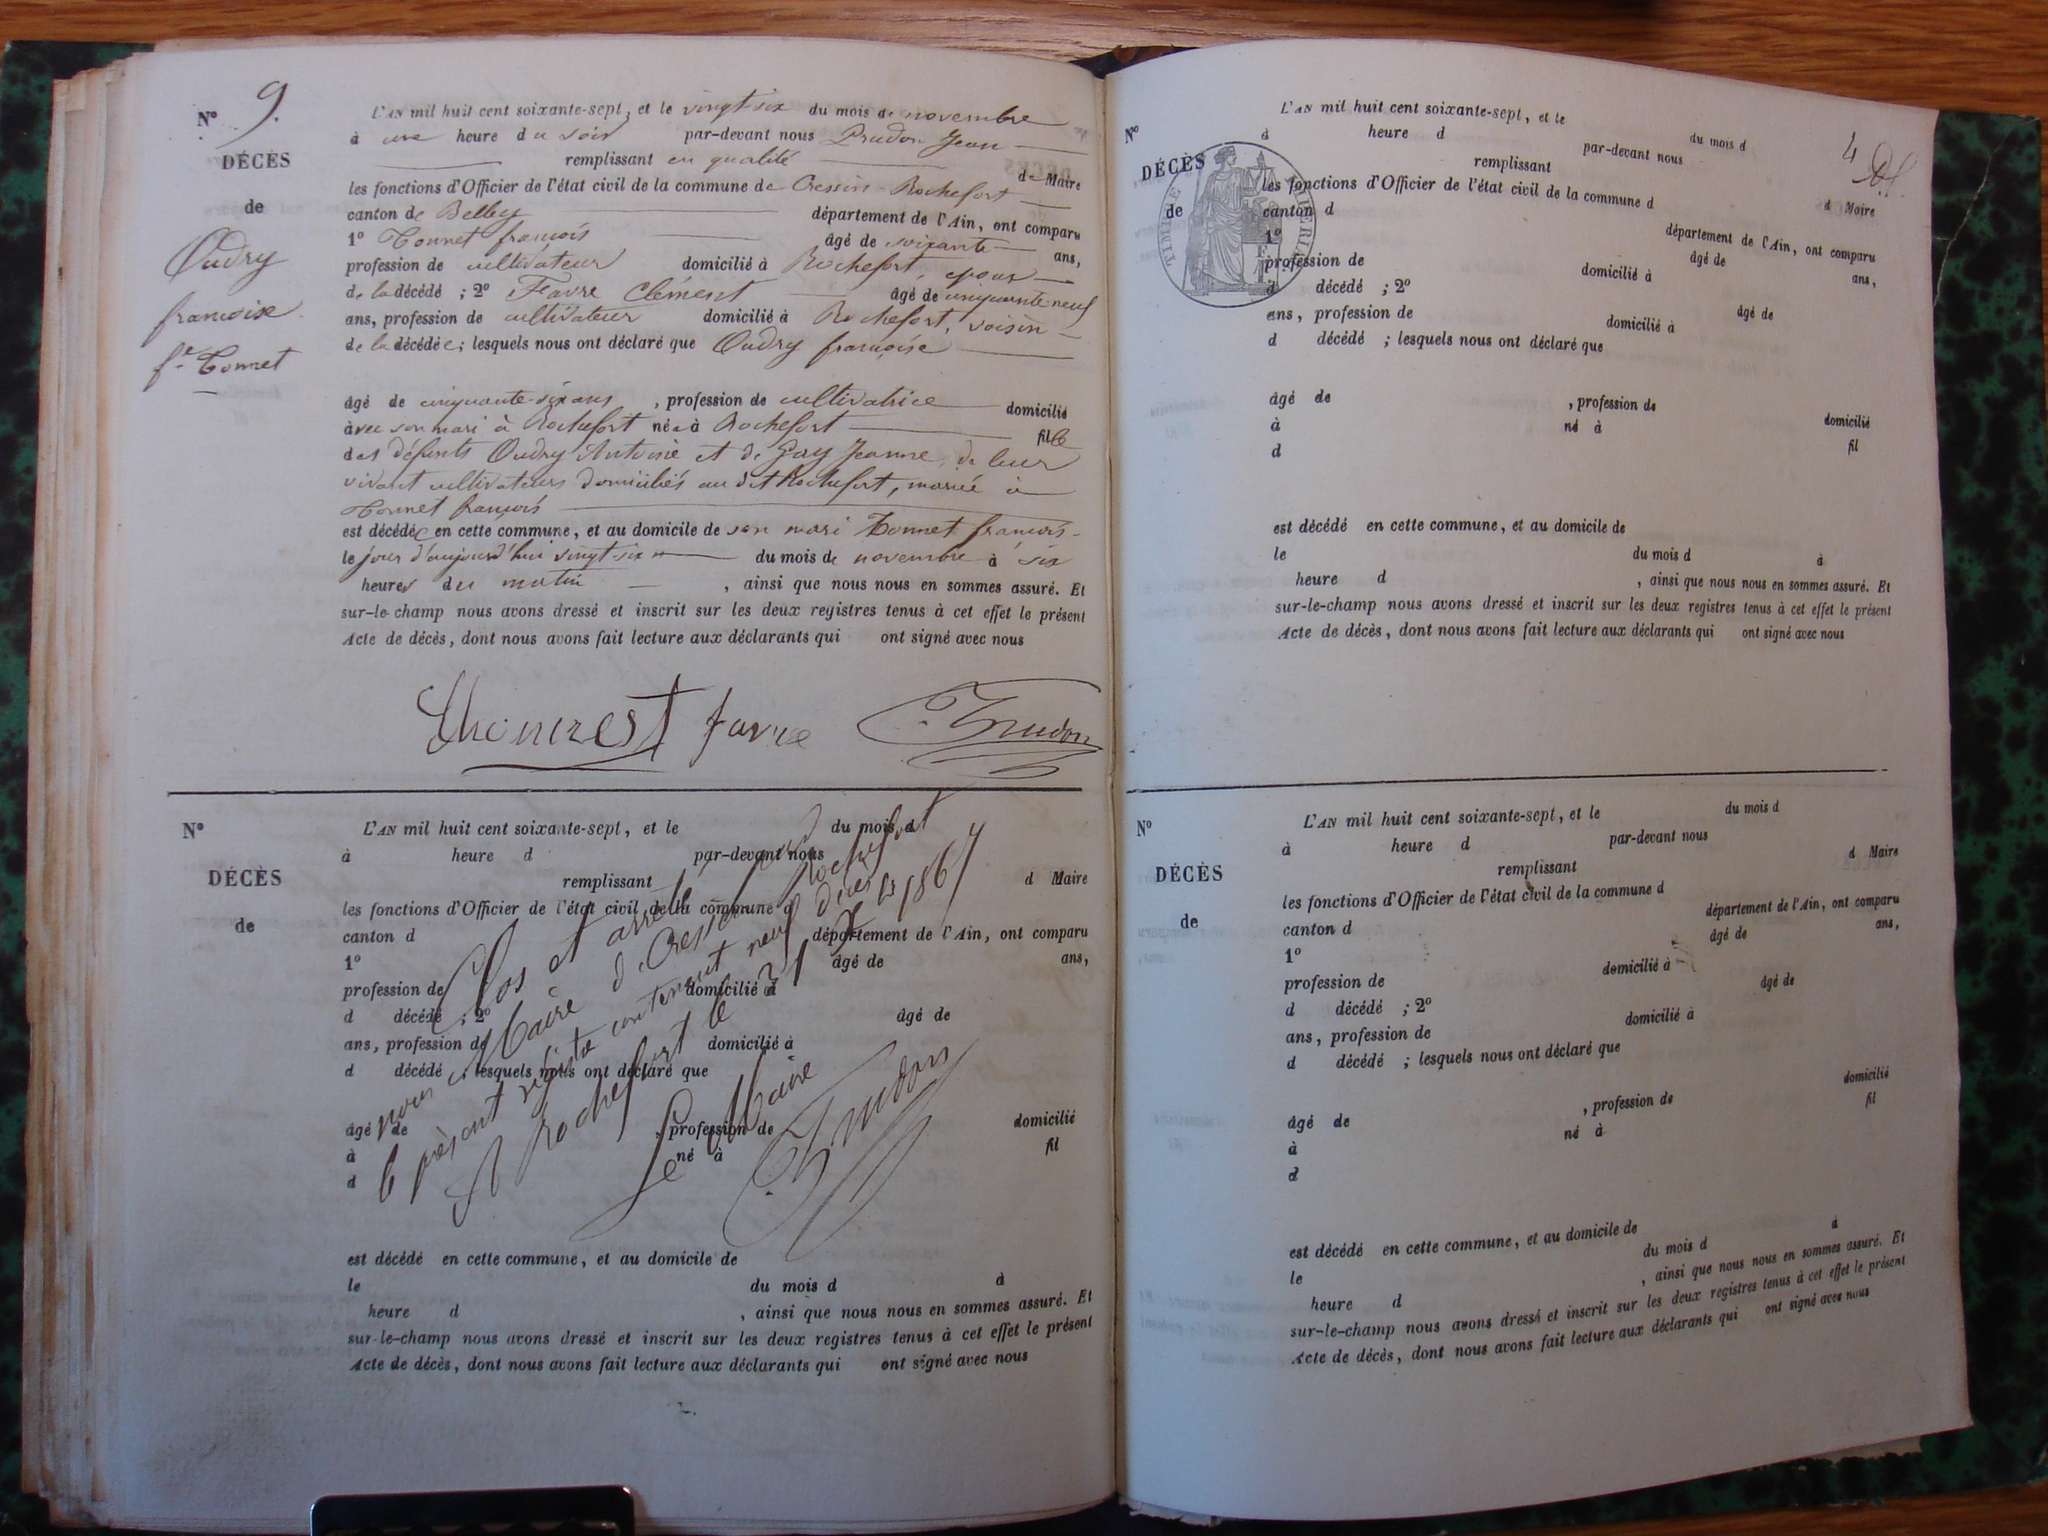 N° 9.
DÉCÈS
de
Oudry
francoise
fe Tonnet
L'AN mil huit cent soixante-sept, et le vingt six du mois de novembre
à une heure du soir par-devant nous Prudon Jean
remplissant en qualité de Maire
les fonctions d'Officier de l'état civil de la commune de Cressin-Rochefort
canton de Belley département de l'Ain, ont comparu
1° Tonnet francois âgé de soixante ans,
profession de cultivateur domicilié à Rochefort, epoux
de la décédé ; 2° Favre Clément âgé de cinquante neuf
ans, profession de cultivateur domicilié à Rochefort, voisin
de la décédée; lesquels nous ont déclaré que Oudry françoise
âgé de cinquante-six ans , profession de cultivatrice domicilié
avec son mari à Rochefort née à Rochefort fille
des défunts Oudry Antoine et de Gay Jeanne, de leur
vivant cultivateurs domiciliés au dit Rochefort, mariée à
Tonnet françois
est décédée en cette commune, et au domicile de son mari Tonnet francois
le jour d'aujourd'hui vingt-six du mois de novembre à six
heures du matin , ainsi que nous nous en sommes assuré. Et
sur-le-champ nous avons dressé et inscrit sur les deux registres tenus à cet effet le présent
Acte de décès, dont nous avons fait lecture aux déclarants qui ont signé avec nous
favre Prudon
N°
DÉCÈS
de
L'AN mil huit cent soixante-sept, et le du mois d
à heure d par-devant nous
remplissant d Maire
les fonctions d'Officier de l'état civil de la commune d
canton d département de l'Ain, ont comparu
1° âgé de ans,
profession de domicilié à
d décédé ; 2° âgé de
ans, profession de domicilié à
d décédé ; lesquels nous ont déclaré que
âgé de , profession de domicilié
à né à fil
d
Clos et arrêté par
nous Maire de Cressin Rochefort
le présent registre contenant neuf décès
A Rochefort le 31 Xbre 1867
Le Maire
Prudon
est décédé en cette commune, et au domicile de
le du mois d à
heure d , ainsi que nous nous en sommes assuré. Et
sur-le-champ nous avons dressé et inscrit sur les deux registres tenus à cet effet le présent
Acte de décès, dont nous avons fait lecture aux déclarants qui ont signé avec nous
4
N°
DÉCÈS
de
TIMBRE IMPERIAL
L'AN mil huit cent soixante-sept, et le du mois d
à heure d par-devant nous
remplissant d Maire
les fonctions d'Officier de l'état civil de la commune d
canton d département de l'Ain, ont comparu
1° âgé de ans,
profession de domicilié à
d décédé ; 2° âgé de
ans, profession de domicilié à
d décédé ; lesquels nous ont déclaré que
âgé de , profession de domicilié
à né à fil
d
est décédé en cette commune, et au domicile de
le du mois d à
heure d , ainsi que nous nous en sommes assuré. Et
sur-le-champ nous avons dressé et inscrit sur les deux registres tenus à cet effet le présent
Acte de décès, dont nous avons fait lecture aux déclarants qui ont signé avec nous
N°
DÉCÈS
de
L'AN mil huit cent soixante-sept, et le du mois d
à heure d par-devant nous
remplissant d Maire
les fonctions d'Officier de l'état civil de la commune d
canton d département de l'Ain, ont comparu
1° âgé de ans,
profession de domicilié à
d décédé ; 2° âgé de
ans, profession de domicilié à
d décédé ; lesquels nous ont déclaré que
âgé de , profession de domicilié
à né à fil
d
est décédé en cette commune, et au domicile de
le du mois d à
heure d , ainsi que nous nous en sommes assuré. Et
sur-le-champ nous avons dressé et inscrit sur les deux registres tenus à cet effet le présent
Acte de décès, dont nous avons fait lecture aux déclarants qui ont signé avec nous